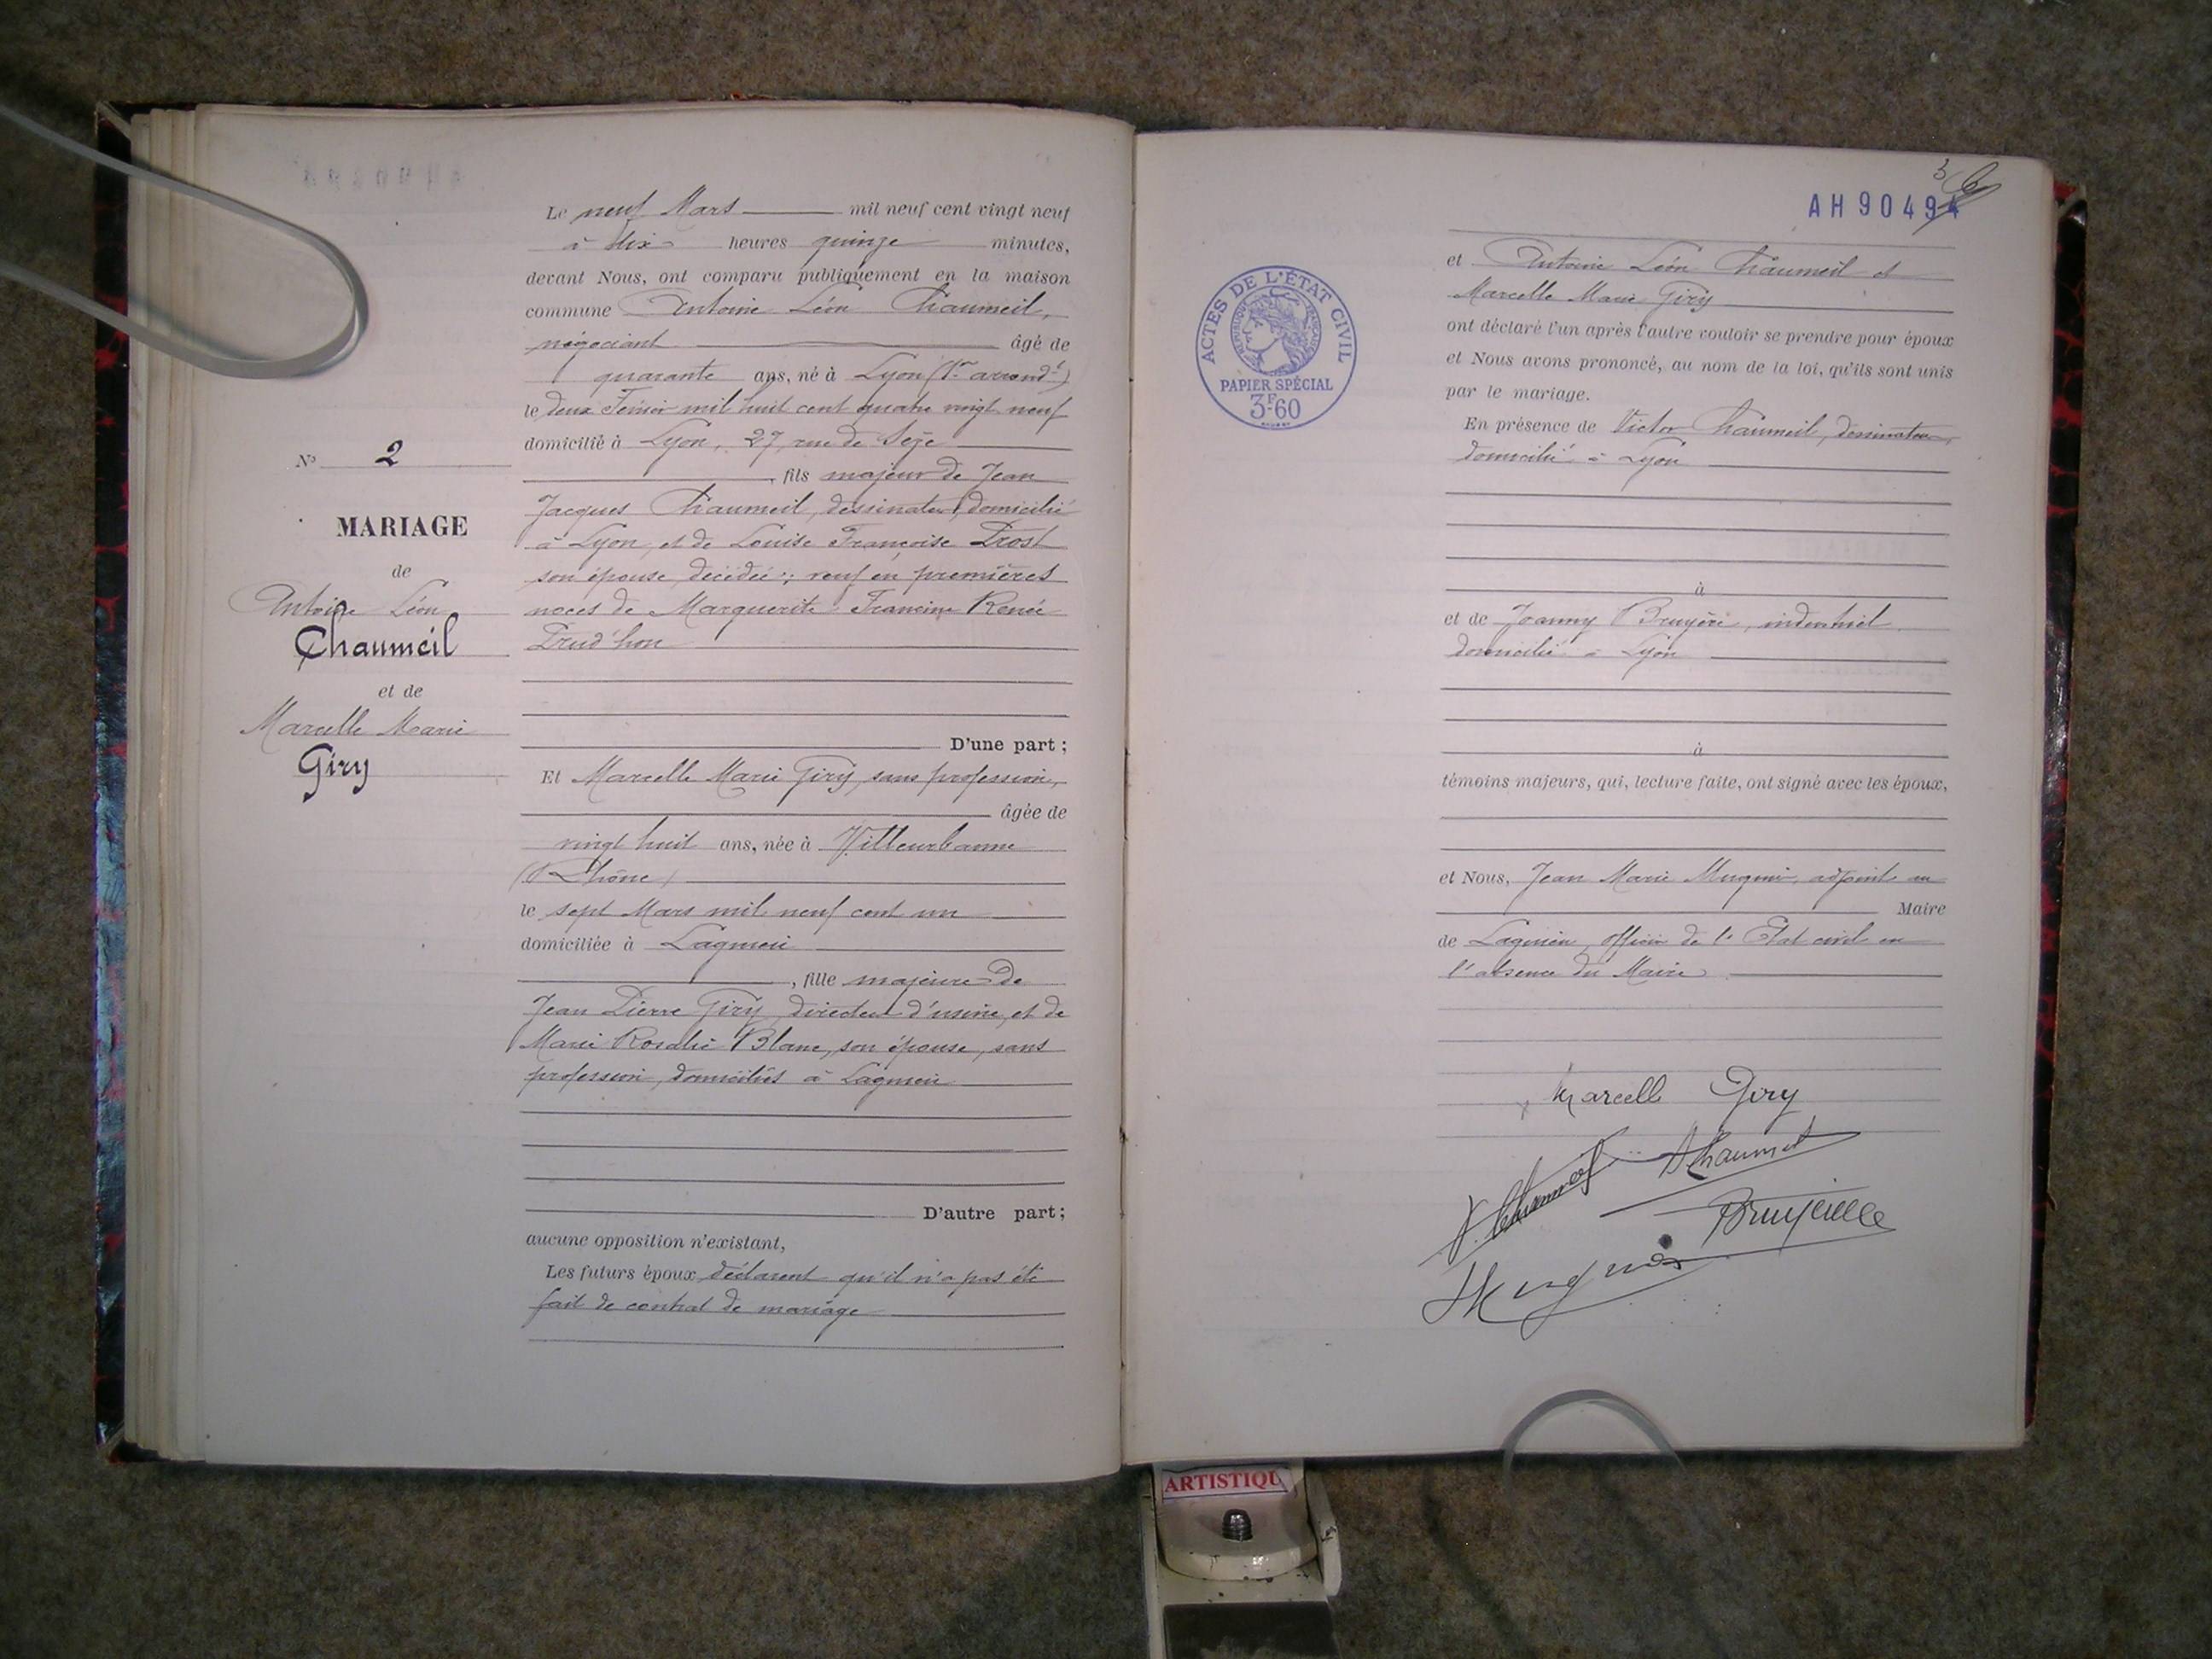 N° 2
MARIAGE
de
Antoine Léon
Chaumeil
et de
Marcelle Marie
Giry
Le neuf Mars mil neuf cent vingt neuf
à dix heures quinze minutes,
devant Nous, ont comparu publiquement en la maison
commune Antoine Léon Chaumeil,
négociant âgé de
quarante ans, né à Lyon (1er arrond.t)
le deux Février mil huit cent quatre vingt neuf
domicilié à Lyon, 27, rue de Sèze
, fils majeur de Jean
Jacques Chaumeil, dessinateur, domicilié
à Lyon, et de Louise Françoise Prost
son épouse, décédée ; veuf en premières
noces de Marguerite Francine Renée
Prud'hon
D'une part ;
Et Marcelle Marie Giry, sans profession,
âgée de
vingt huit ans, née à Villeurbanne
(Rhône)
le sept Mars mil neuf cent un
domiciliée à Lagnieu
, fille majeure de
Jean Pierre Giry, directeur d'usine, et de
Marie Rosalie Blanc, son épouse, sans
profession, domiciliés à Lagnieu
D'autre part ;
aucune opposition n'existant,
Les futurs époux déclarent qu'il n'a pas été
fait de contrat de mariage
AH 90494
ACTES DE L'ÉTAT CIVIL
RÉPUBLIQUE FRANÇAISE
PAPIER SPÉCIAL
3F60
et Antoine Léon Chaumeil et
Marcelle Marie Giry
ont déclaré l'un après l'autre vouloir se prendre pour époux
et Nous avons prononcé, au nom de la loi, qu'ils sont unis
par le mariage.
En présence de Victor Chaumeil, dessinateur,
domicilié à Lyon
à
et de Joanny Bruyère, industriel
domicilié à Lyon
à
témoins majeurs, qui, lecture faite, ont signé avec les époux,
et Nous, Jean Marie Mugnier, adjoint au
Maire
de Lagnieu, officier de l'Etat civil en
l'absence du Maire
Marcelle Giry
V. Chaumeil
A Chaumeil
ARTISTIQU